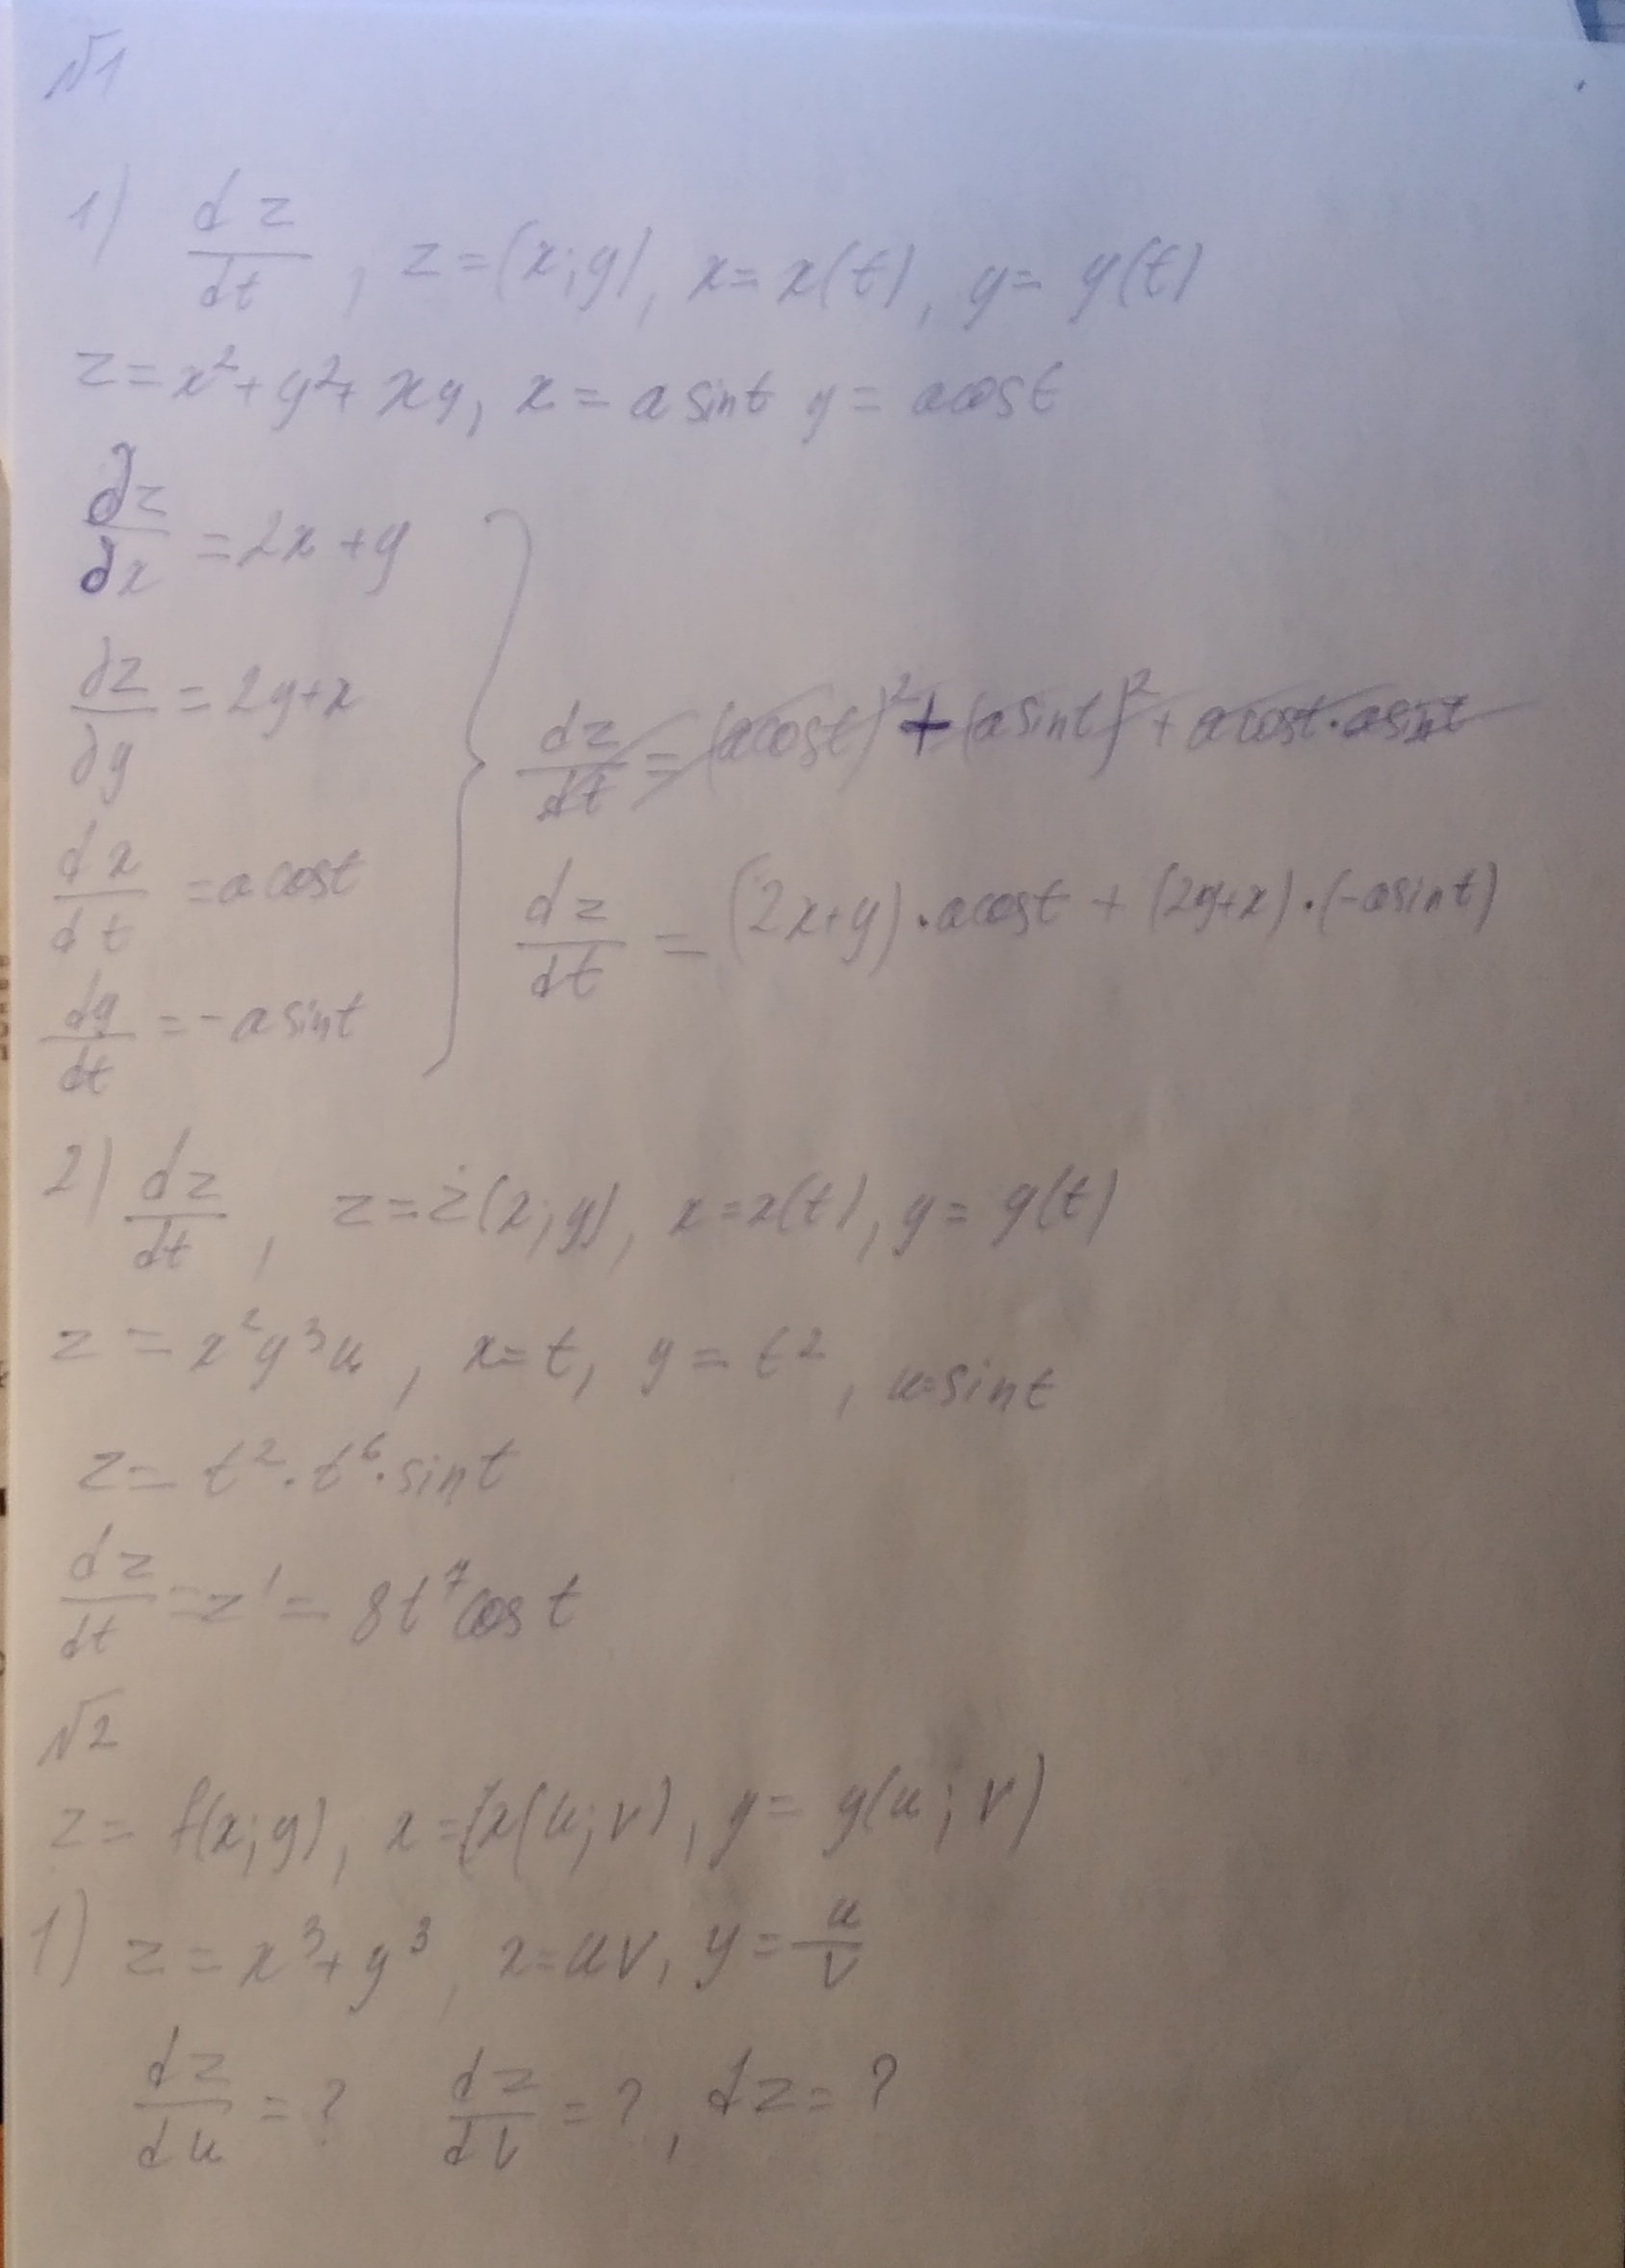 №1
1) dz/dt, z=(x;y), x=x(t), y=y(t)
z=x²+y²+xy, x=a sint y=acost
∂z/∂x =2x+y
∂z/∂y =2y+x
dz/dt=(acost)²+(asint)²+acost·asint
dx/dt =acost
dz/dt =(2x+y)·acost+(2y+x)·(-asint)
dy/dt =-asint
2) dz/dt, z=z(x;y), x=x(t), y=y(t)
z=x²y³u, x=t, y=t², u=sint
z=t²·t⁶·sint
dz/dt=z'=8t⁷cost
№2
z=f(x;y), x=x(u;v), y=y(u;v)
1) z=x³+y³, x=uv, y=u/v
dz/du=? dz/dv=?, dz=?